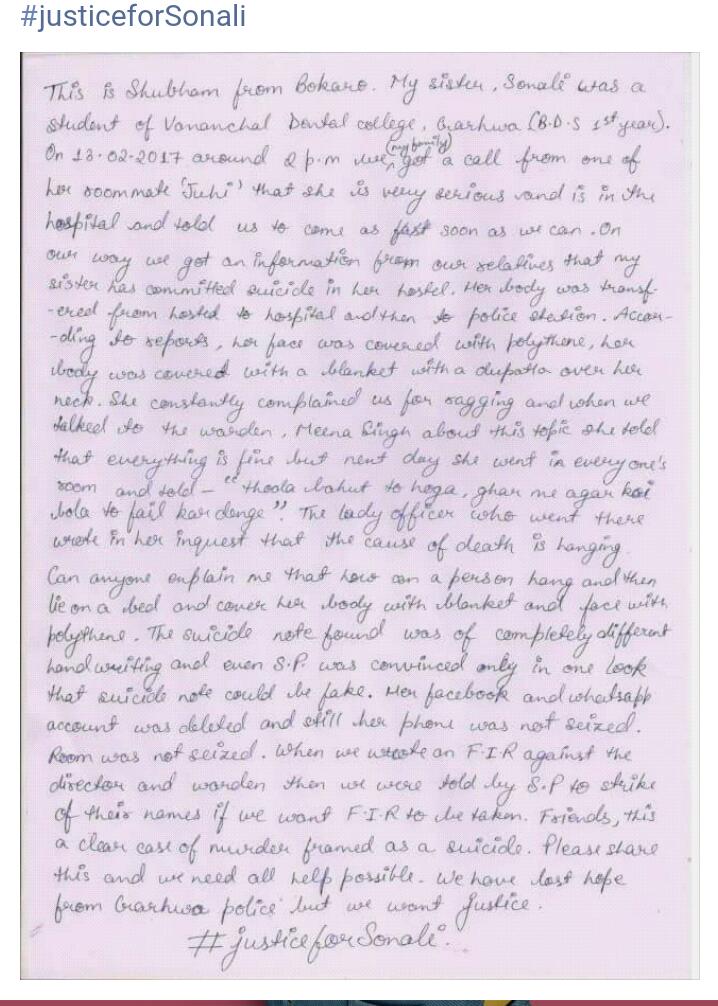 #justiceforSonali
This is Shubham from Bokaro. My sister, Sonali was a
student of Vananchal Dental college, Garhwa (B.D.S 1st year).
On 13-02-2017 around 2 p.m we (my family) got a call from one of
her roommate 'Juhi' that she is very serious and is in the
hospital and told us to come as fast soon as we can. On
our way we got an information from our relatives that my
sister has committed suicide in her hostel. Her body was transf-
-ered from hosted to hospital and then to police station. Accor-
-ding to reports, her face was covered with polythene, her
body was covered with a blanket with a dupatta over her
neck. She constantly complained us for ragging and when we
talked to the warden, Meena Singh about this topic she told
that everything is fine but next day she went in everyone's
room and told - "thoda bahut to hoga, ghar me agar koi
bola to fail kar denge". The lady officer who went there
wrote in her inquest that the cause of death is hanging.
Can anyone explain me that how can a person hang and then
lie on a bed and cover her body with blanket and face with
polythene. The suicide note found was of completely different
handwriting and even S.P. was convinced only in one look
that suicide note could be fake. Her facebook and whatsapp
account was deleted and still her phone was not seized.
Room was not seized. When we wrote an F.I.R against the
director and warden then we were told by S.P to strike
of their names if we want F.I.R to be taken. Friends, this
a clear case of murder framed as a suicide. Please share
this and we need all help possible. We have lost hope
from Garhwa police but we want justice.
#justiceforSonali.